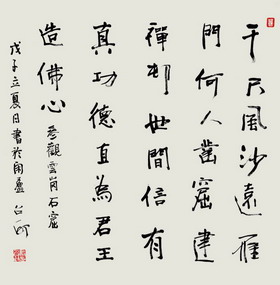 千尺風沙遠雁
門何人鑿窟建
禪邨世間信有
真功德直為君王
造佛心 參觀雲岗石窟
戊子立夏日書於